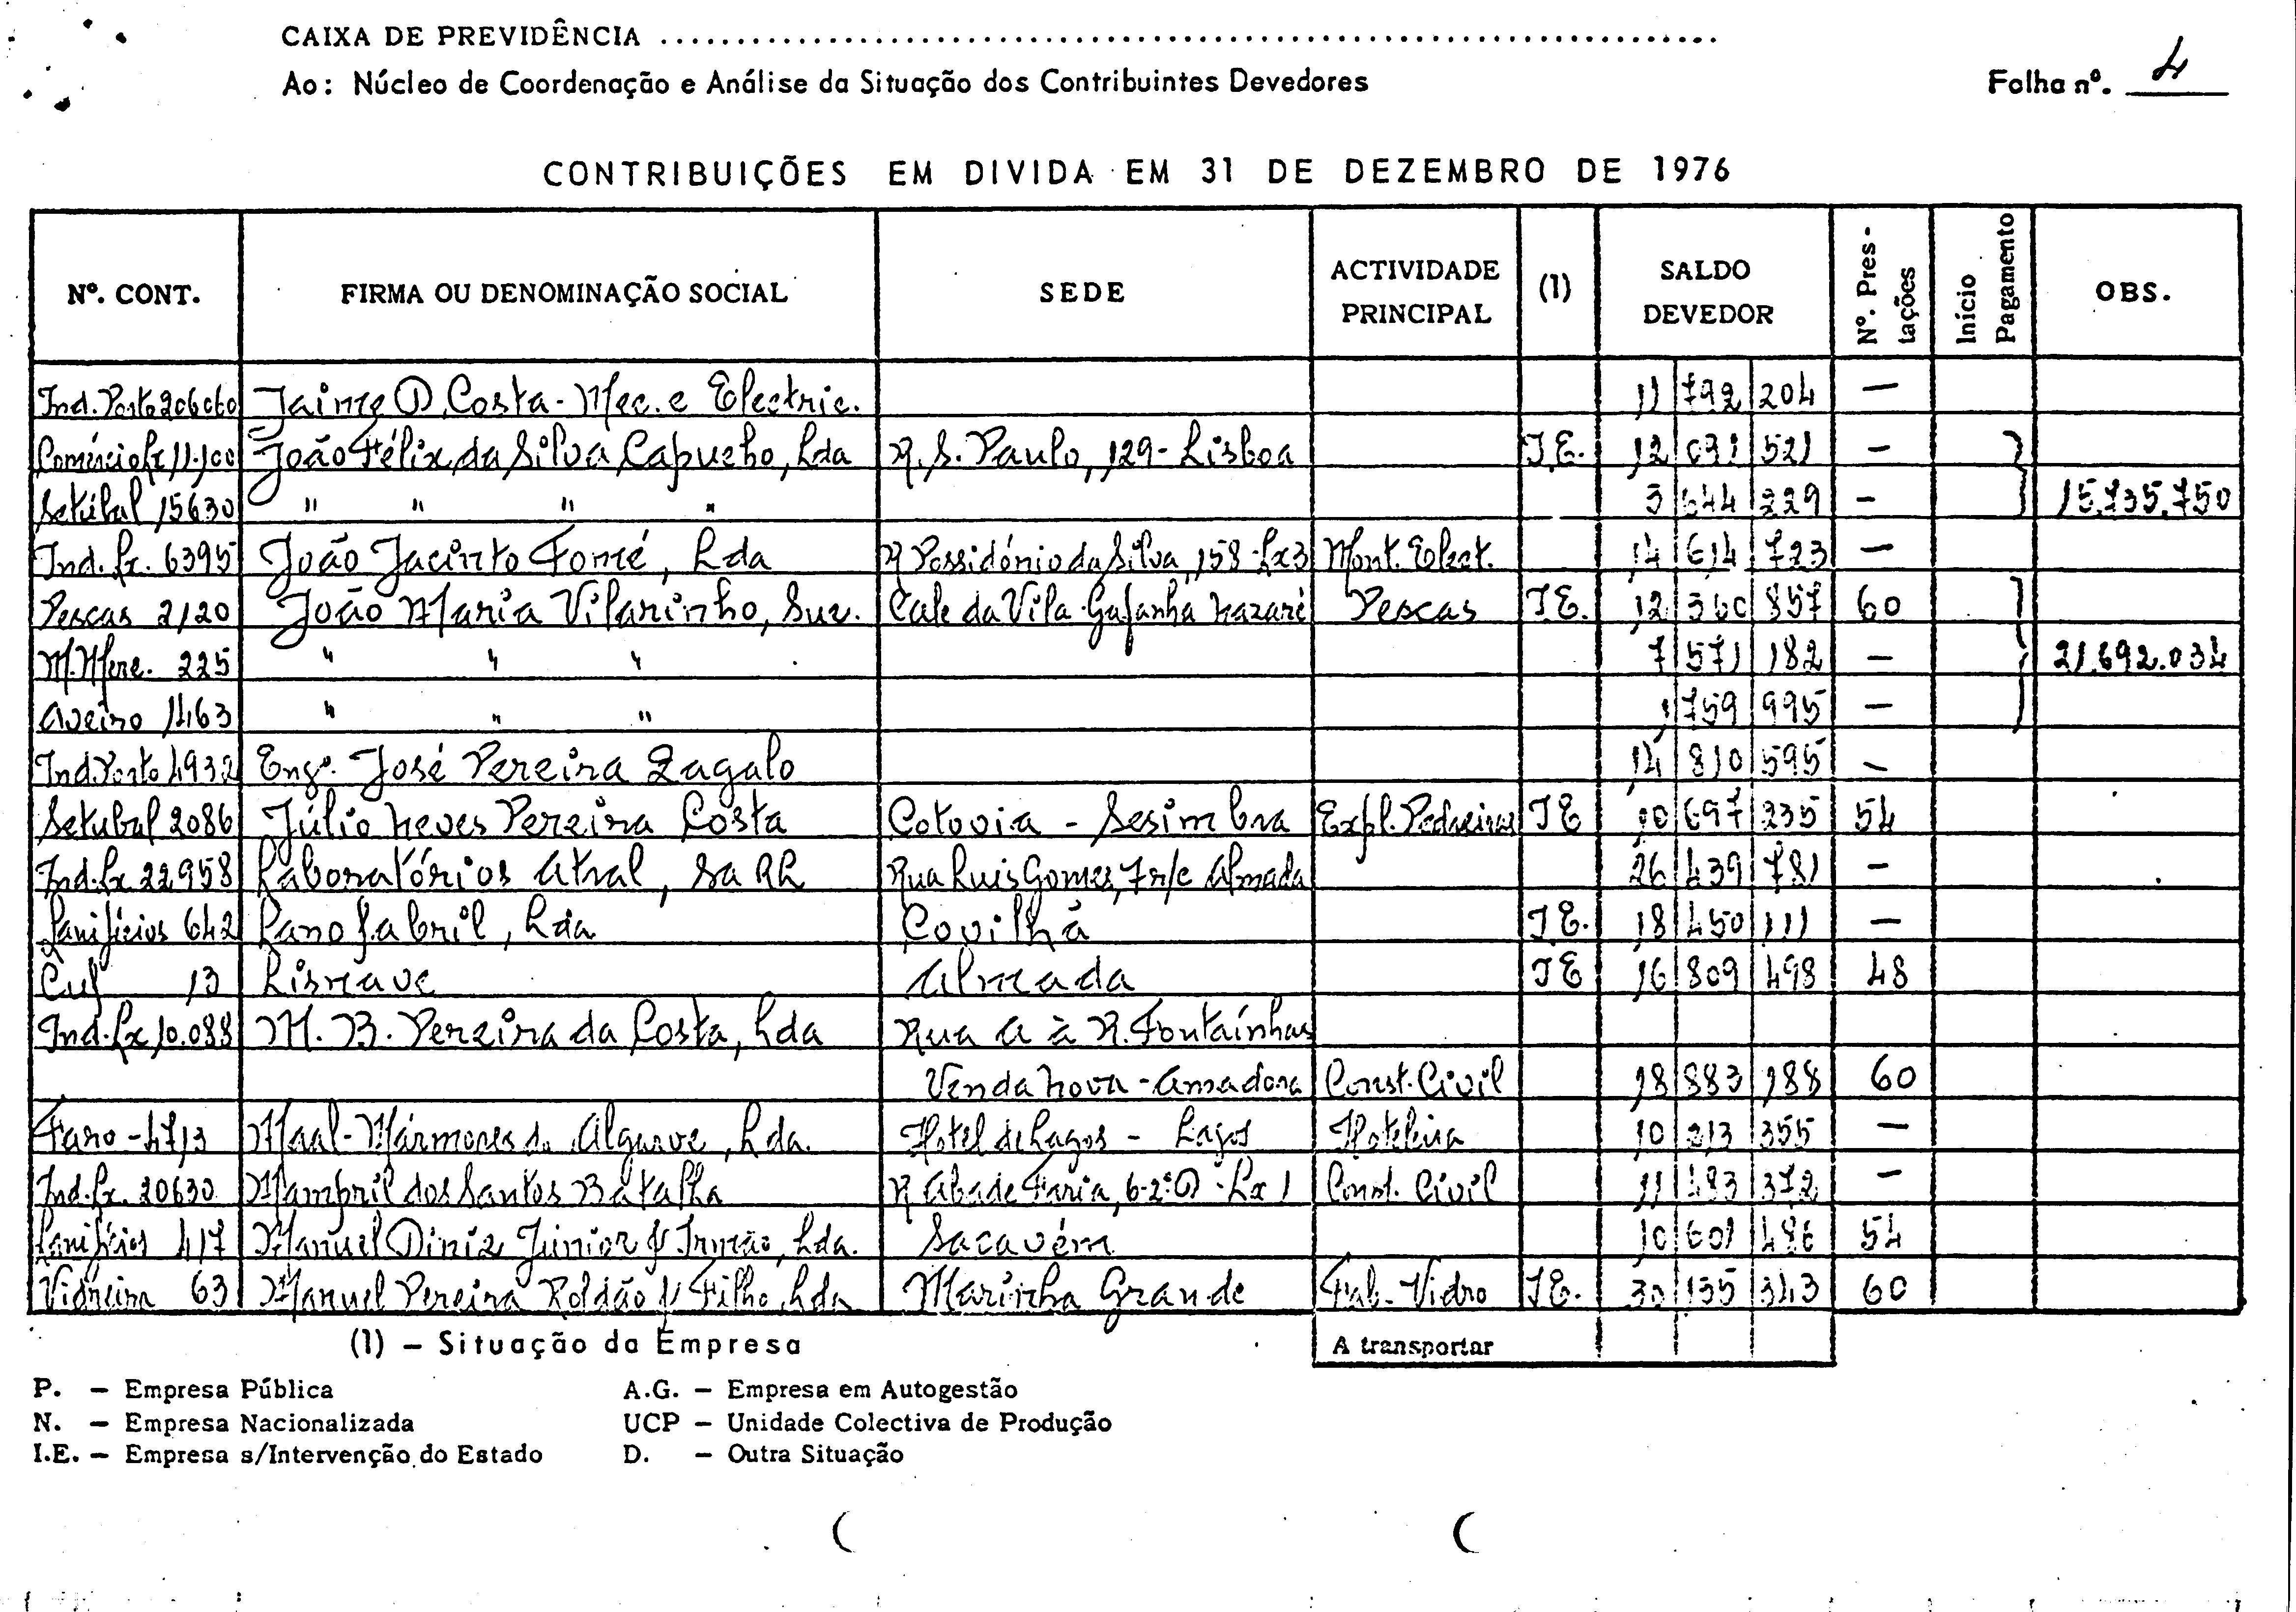 CAIXA DE PREVIDÊNCIA
Ao: Núcleo de Coordenação e Análise da Situação dos Contribuintes Devedores
Folha nº. 4
CONTRIBUIÇÕES EM DIVIDA EM 31 DE DEZEMBRO DE 1976
Nº. CONT. FIRMA OU DENOMINAÇÃO SOCIAL SEDE ACTIVIDADE PRINCIPAL (1) SALDO DEVEDOR Nº. Pres-tações Início Pagamento OBS.
Ind. Porto Jaime D. Costa - Mec. e Electric. 11 792 204 —
Comércio Lx 11.100 João Félix da Silva Capucho, Lda R. S. Paulo, 129 - Lisboa I.E. 12 091 521 —
Setúbal 15630 " " " " 3 644 229 — 15.735.750
Ind. Lx. 6395 João Jacinto Tomé, Lda R Possidónio da Silva, 158 - Lx3 Mont. Elect. 14 614 723 —
Pescas 2120 João Maria Vilarinho, Suc. Cale da Vila - Gafanha Nazaré Pescas I.E. 12 360 857 60
M. Merc. 225 " " " 7 571 182 — 21.692.034
Aveiro 1463 " " " 1 759 995 —
Ind. Porto 4932 Engº. José Pereira Zagalo 14 810 595 —
Setubal 2086 Júlio Neves Pereira Costa Cotovia - Sesimbra Expl. Pedreiras I E 10 697 235 54
Ind. Lx 22958 Laboratórios Atral, SARL Rua Luis Gomes, 7 r/c Almada 26 439 781 —
Lanifícios 642 Lanofabril, Lda Covilhã I E. 18 450 111 —
Cuf 13 Lisnave Almada I E 16 809 498 48
Ind. Lx 10.088 M. B. Pereira da Costa, Lda Rua A à R. Fontaínhas
Venda Nova - Amadora Const. Civil 18 883 188 60
Faro - 4713 Maal - Mármores do Algarve, Lda. Hotel de Lagos - Lagos Hoteleira 10 213 355 —
Ind. Lx. 20630 Mambril dos Santos Batalha R Abade Faria, 6-2º D - Lx 1 Const. Civil 11 483 372 —
Lanifícios 417 Manuel Diniz Júnior & Irmão, Lda. Sacavém 10 601 486 54
Vidreira 63 Manuel Pereira Roldão & Filho, Lda Marinha Grande Fab. Vidro I E. 30 135 343 60
(1) — Situação da Empresa A transportar
P. — Empresa Pública A.G. — Empresa em Autogestão
N. — Empresa Nacionalizada UCP — Unidade Colectiva de Produção
I.E. — Empresa s/Intervenção do Estado D. — Outra Situação